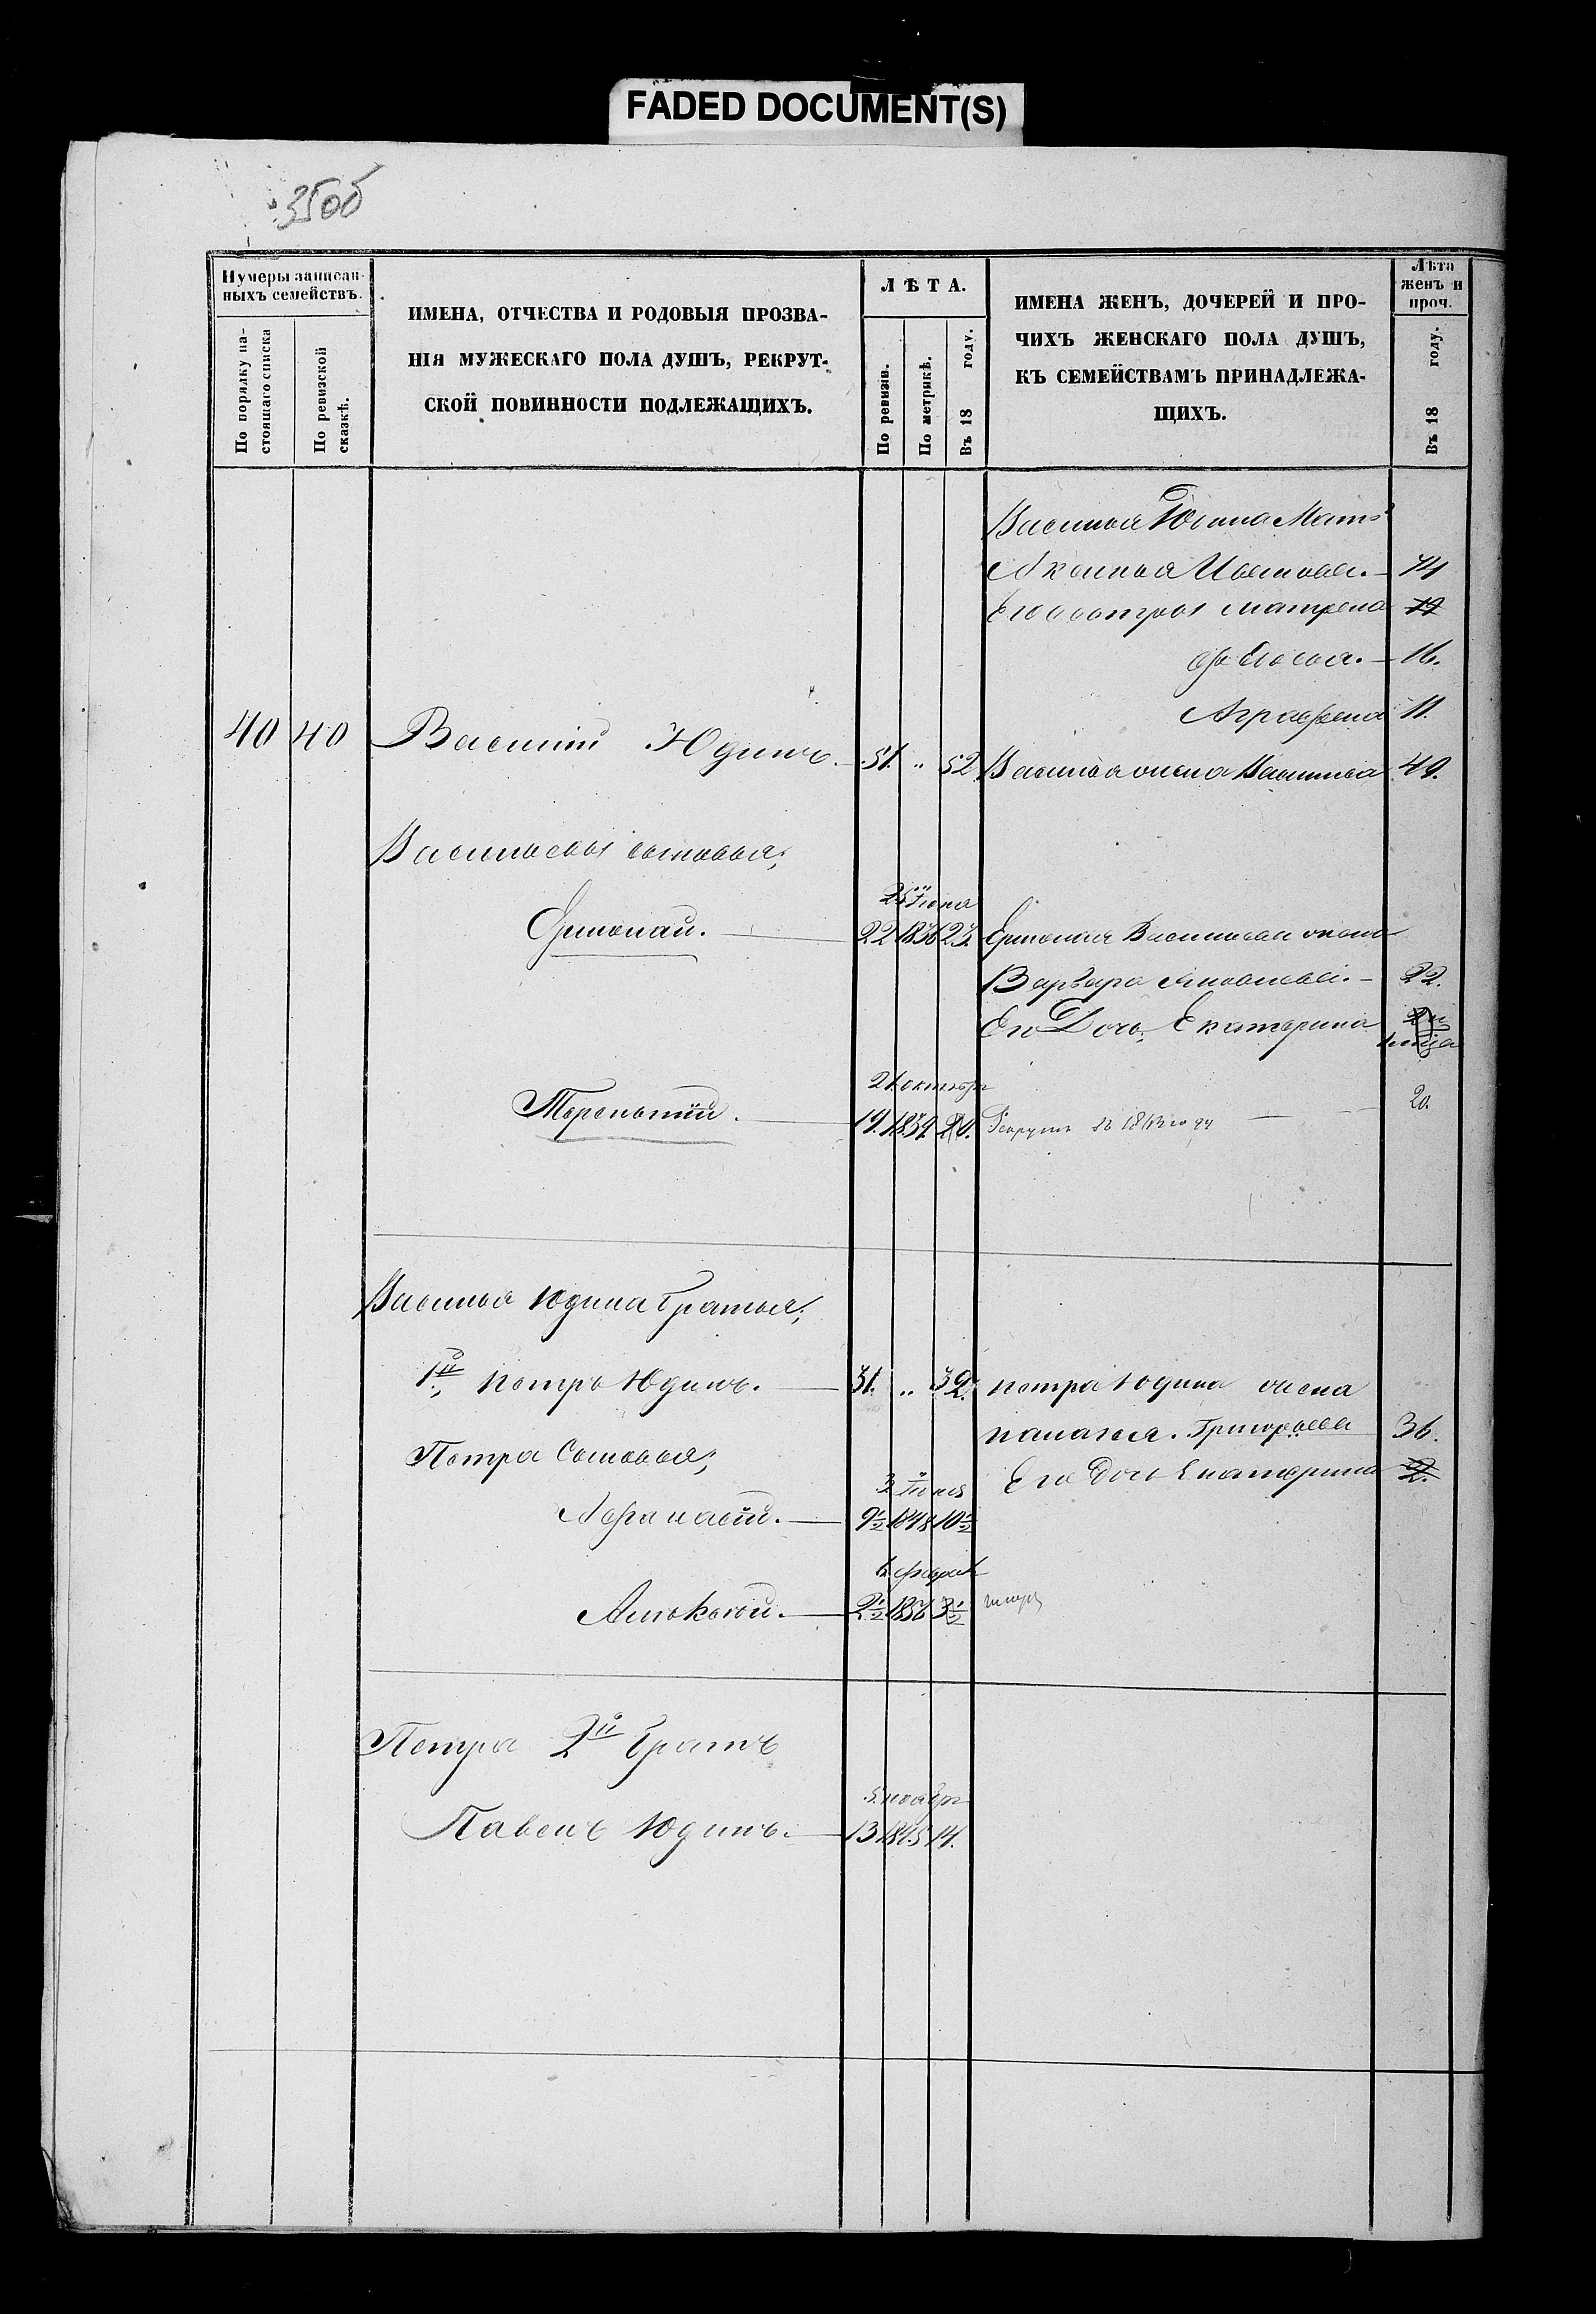 FADED DOCUMENT(S)
35об
Нумеры записан-
ныхъ семействъ.
По порядку на-
стоящаго списка
По ревизской
сказкѣ.
ИМЕНА, ОТЧЕСТВА И РОДОВЫЯ ПРОЗВА-
НІЯ МУЖЕСКАГО ПОЛА ДУШЪ, РЕКРУТ-
СКОЙ ПОВИННОСТИ ПОДЛЕЖАЩИХЪ.
ЛѢТА.
По ревизіи.
По метрикѣ.
Въ 18 году.
ИМЕНА ЖЕНЪ, ДОЧЕРЕЙ И ПРО-
ЧИХЪ ЖЕНСКАГО ПОЛА ДУШЪ,
КЪ СЕМЕЙСТВАМЪ ПРИНАДЛЕЖА-
ЩИХЪ.
Лѣта
женъ и
проч.
Въ 18 году.
Василья Юдина Мать
Аксинья Иванова. 74
Его сестры Матрена 19
16.
Аграфена 11.
40 40 Василій Юдинъ. 51. " 52 Василья жена 49.
Васильевы сыновья;
25 Іюня
Ермолай. 22 1836 23. Ермолая Васильева жена
Варвара 22.
Его Дочь Екатерина
21 октября
Терентій. 19. 1839. 20. Рекрутъ 20.
Василья Юдина братья;
1й Петръ Юдинъ. 31. " 32. Петра Юдина жена
Палагея. Григорьева 36.
Петра Сыновья; Его Дочь Екатерина 2.
3 Іюня
Афанасій. 9½ 1848 10½
6 феврал
Алексѣй. 2½ 1856 3½
Петра 2й братъ
5 ноябр
Павелъ Юдинъ. 13 1845 14.